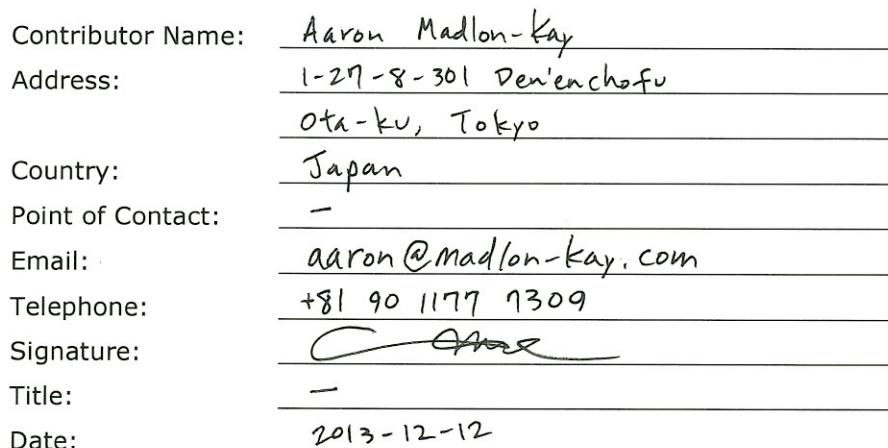 Contributor Name: Aaron Madlon-Kay
Address: 1-27-8-301 Den'enchofu
Ota-ku, Tokyo
Country: Japan
Point of Contact: –
Email: aaron@madlon-kay.com
Telephone: +81 90 1177 7309
Signature:
Title: –
Date: 2013-12-12